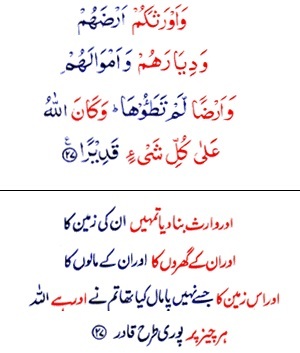 وَاَوْرَثَكُمْ اَرْضَهُمْ
وَدِيَارَهُمْ وَاَمْوَالَهُمْ
وَاَرْضًا لَّمْ تَطَـُٔوْهَا ؕ وَكَانَ اللّٰهُ
عَلٰى كُلِّ شَىْءٍ قَدِيْرًا ﴿۲۷﴾ ع
اور وارث بنا دیا تمہیں ان کی زمین کا
اور ان کے گھروں کا اور ان کے مالوں کا
اور اس زمین کا جسے نہیں پامال کیا تھا تم نے اور ہے اللہ
ہر چیز پر پوری طرح قادر ﴿۲۷﴾